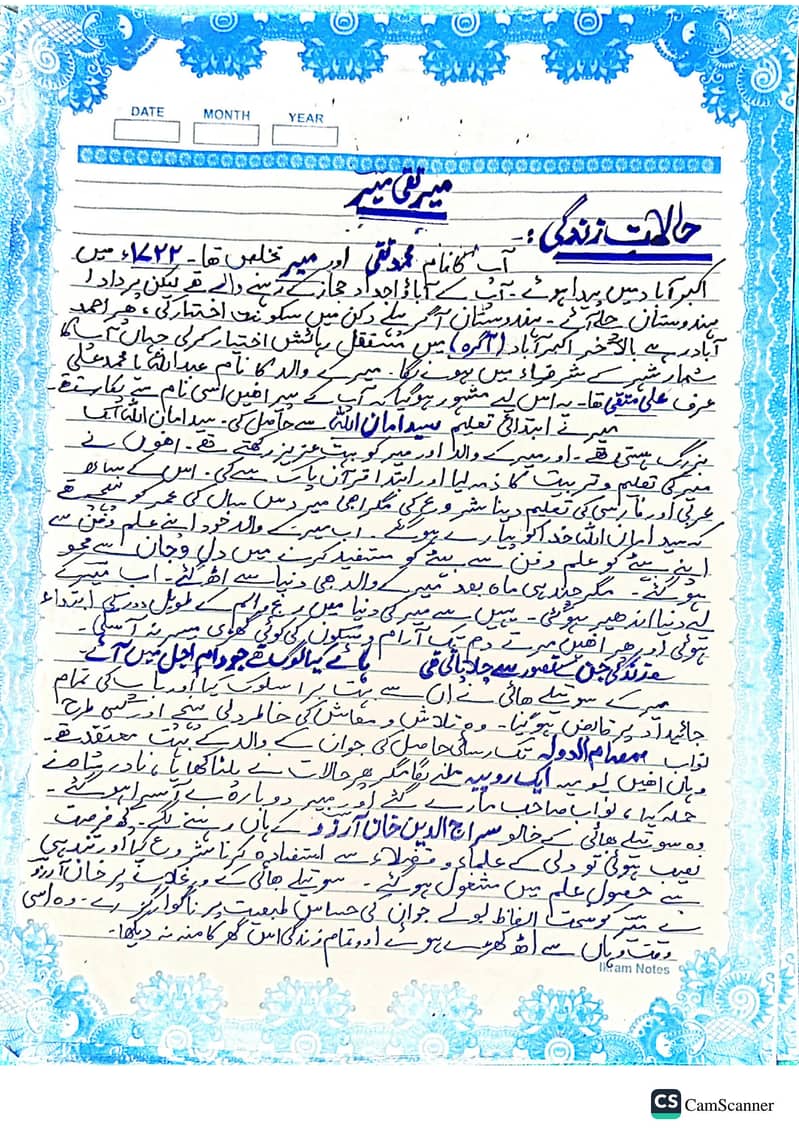 DATE MONTH YEAR
میر تقی میر
حالاتِ زندگی :-
آپ کا نام محمد تقی اور میر تخلص تھا۔ ۱۷۲۲ء میں
اکبر آباد میں پیدا ہوئے۔ آپ کے آباؤ اجداد حجاز کے رہنے والے تھے لیکن پردادا
ہندوستان چلے آئے۔ ہندوستان آ کر پہلے دکن میں سکونت اختیار کی، پھر احمد
آباد رہے بالآخر اکبر آباد (آگرہ) میں مستقل رہائش اختیار کر لی جہاں آپ کا
شمار شہر کے شرفاء میں ہونے لگا۔ میر کے والد کا نام عبداللہ یا محمد علی
عرف علی متقی تھا۔ یہ اس لیے مشہور ہو گیا کہ آپ کے پیر انھیں اسی نام سے پکارتے تھے۔
میر نے ابتدائی تعلیم سید امان اللہ سے حاصل کی۔ سید امان اللہ ایک
بزرگ ہستی تھے۔ اور میر کے والد اور میر کو بہت عزیز رکھتے تھے۔ انھوں نے
میر کی تعلیم و تربیت کا ذمہ لیا اور ابتدا قرآن پاک سے کی۔ اس کے ساتھ
عربی اور فارسی کی تعلیم دینا شروع کی مگر ابھی میر دس سال کی عمر کو پہنچے تھے
کہ سید امان اللہ خدا کو پیارے ہو گئے۔ اب میر کے والد خود اپنے علم و فن سے
اپنے بیٹے کو علم و فن سے مستفید کرنے میں دل و جان سے محو
ہو گئے۔ مگر چند ہی ماہ بعد میر کے والد بھی دنیا سے اٹھ گئے۔ اب میر کے
لیے دنیا اندھیر ہو گئی۔ یہیں سے میر کی دنیا میں رنج و الم کے طویل دور کی ابتداء
ہوئی اور پھر انھیں مرتے دم تک آرام و سکون کی کوئی گھڑی میسر نہ آ سکی۔
زندگی جن کے تصور سے جلا پاتی تھی ہائے کیا لوگ تھے جو دام اجل میں آئے۔
میر کے سوتیلے بھائی نے ان سے بہت برا سلوک کیا اور باپ کی تمام
جائیداد پر قابض ہو گیا۔ وہ تلاش و معاش کی خاطر دلی پہنچے اور کسی طرح
نواب صمصام الدولہ تک رسائی حاصل کی جو ان کے والد کے بہت معتقد تھے۔
وہاں انھیں یومیہ ایک روپیہ ملنے لگا مگر پھر حالات نے پلٹا کھایا، نادر شاہ نے
حملہ کیا، نواب صاحب مارے گئے اور میر دوبارہ بے آسرا ہو گئے۔
وہ سوتیلے بھائی کے خالو سراج الدین خان آرزو کے ہاں رہنے لگے۔ کچھ فرصت
نصیب ہوئی تو دلی کے علماء و فضلاء سے استفادہ کرنا شروع کیا اور تندہی
سے حصول علم میں مشغول ہو گئے۔ سوتیلے بھائی کے ورغلانے پر خان آرزو
نے میر کو سخت الفاظ بولے جو ان کی حساس طبیعت پر ناگوار گزرے۔ وہ اسی
وقت وہاں سے اٹھ کھڑے ہوئے اور تمام زندگی اس گھر کا منہ نہ دیکھا۔
Ikram Notes
CS CamScanner